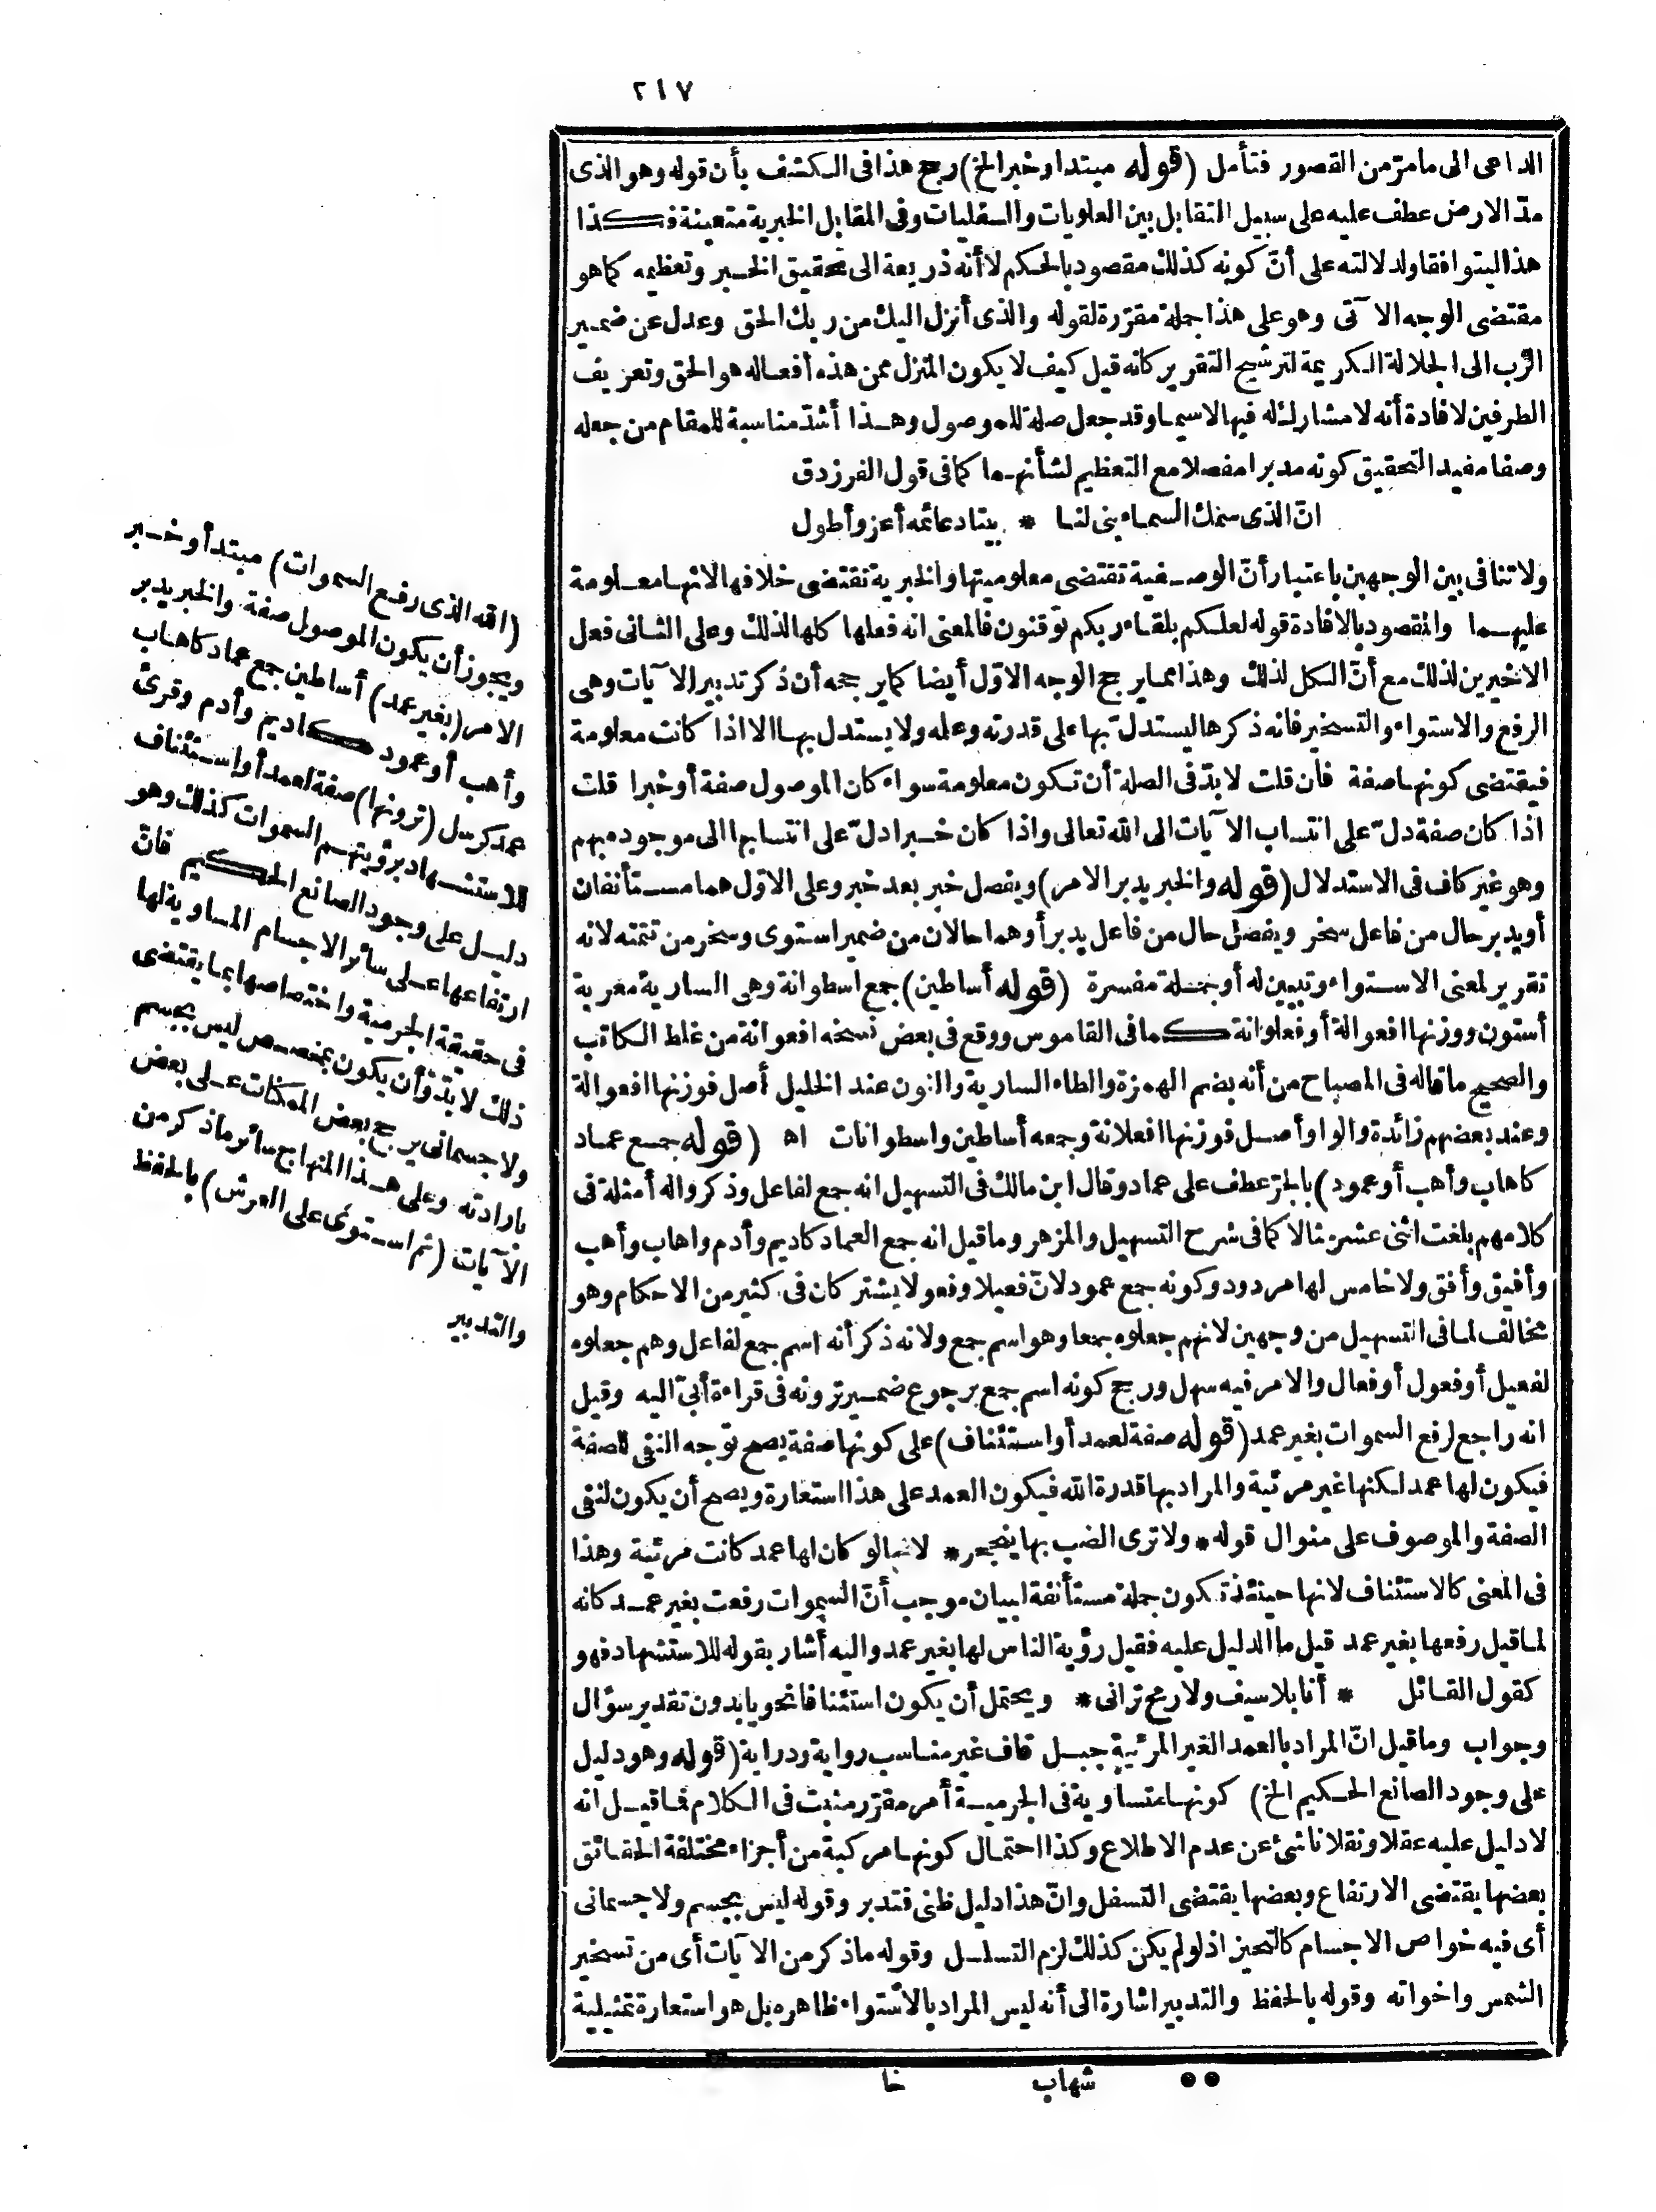 ٢١٧
الداعى الى ما مرّ من القصور فتأمل (قوله مبتدا وخبر الخ) رجح هذا فى الكشف بأن قوله وهو الذى
مدّ الارض عطف عليه على سبيل التقابل بين العلويات والسفليات وفى المقابل الخبرية متعينة فكذا
هذا ليتوافقا ولدلالته على أنّ كونه كذلك مقصود بالحكم لا أنه ذريعة الى تحقيق الخبر وتعظيمه كما هو
مقتضى الوجه الآتى وهو على هذا جملة مقرّرة لقوله والذى أنزل اليك من ربك الحق وعدل عن ضمير
الرّب الى الجلالة الكريمة لترشيح التقرير كانه قيل كيف لا يكون المنزل ممن هذه أفعاله هو الحق وتعريف
الطرفين لافادة أنه لا مشارك له فيها لاسيما وقد جعل صلة للموصول وهذا أشدّ مناسبة للمقام من جعله
وصفا مفيد التحقيق كونه مدبرا مفصلا مع التعظيم لشأنهما كما فى قول الفرزدق
انّ الذى سمك السماء بنى لنا * بيتا دعائمه أعز وأطول
ولا تنافى بين الوجهين باعتبار أنّ الوصفية تقتضى معلوميتها والخبرية تقتضى خلافها لانها معلومة
عليهما والمقصود بالافادة قوله لعلكم بلقاء ربكم توقنون فالمعنى انه فعلها كلها لذلك وعلى الثانى فعل
الاخيرين لذلك مع أنّ الكل لذلك وهذا مما يرجح الوجه الاوّل أيضا كما يرجحه أن ذكر تدبير الآيات وهى
الرفع والاستواء والتسخير فانه ذكرها ليستدلّ بها على قدرته وعلمه ولا يستدل بها الا اذا كانت معلومة
فيقتضى كونها صفة فان قلت لا بدّ فى الصلة أن تكون معلومة سواء كان الموصول صفة أو خبرا قلت
اذا كان صفة دلّ على انتساب الآيات الى الله تعالى واذا كان خبرا دلّ على انتسابها الى موجود مبهم
وهو غير كاف فى الاستدلال (قوله والخبر يدبر الامر) ويفصل خبر بعد خبر وعلى الاوّل هما مستأنفان
أو يدبر حال من فاعل سخر ويفصل حال من فاعل يدبر أو هما حالان من ضمير استوى وسخر من تتمته لانه
تقرير لمعنى الاستواء وتبيين له أو جملة مفسرة (قوله أساطين) جمع اسطوانة وهى السارية معربة
أستون ووزنها افعوالة أو فعلوانة كما فى القاموس ووقع فى بعض نسخه افعوانة من غلط الكاتب
والصحيح ما قاله فى المصباح من أنه بضم الهمزة والطاء السارية والنون عند الخليل أصل فوزنها افعوالة
وعند بعضهم زائدة والواو أصل فوزنها افعلانة وجمعه أساطين واسطوانات اه (قوله جمع عماد
كاهاب وأهب أو عمود) بالجرّ عطف على عماد وقال ابن مالك فى التسهيل انه جمع لفاعل وذكروا له أمثلة فى
كلامهم بلغت اثنى عشر مثالا كما فى شرح التسهيل والمزهر وما قيل انه جمع العماد كاديم وأدم واهاب وأهب
وأفيق وأفق ولا خامس لها مردود وكونه جمع عمود لانّ فعيلا وفعولا يشتركان فى كثير من الاحكام وهو
مخالف لما فى التسهيل من وجهين لانهم جعلوه جمعا وهو اسم جمع ولانه ذكر أنه اسم جمع لفاعل وهم جعلوه
لفعيل أو فعول أو فعال والامر فيه سهل ورجح كونه اسم جمع برجوع ضمير ترونه فى قراءة أبىّ اليه وقيل
انه راجع لرفع السموات بغير عمد (قوله صفة لعمد أو استئناف) على كونها صفة يصح توجه النفى للصفة
فيكون لها عمد لكنها غير مرئية والمراد بها قدرة الله فيكون العمد على هذا استعارة ويصح أن يكون لنفى
الصفة والموصوف على منوال قوله * ولا ترى الضب بها ينجحر * لانها لو كان لها عمد كانت مرئية وهذا
فى المعنى كالاستئناف لانها حينئذ تكون جملة مستأنفة لبيان موجب أنّ السموات رفعت بغير عمد كانه
لما قيل رفعها بغير عمد قيل ما الدليل عليه فقيل رؤية الناس لها بغير عمد واليه أشار بقوله للاستشهاد فهو
كقول القائل * أنا بلا سيف ولا رمح ترانى * ويحتمل أن يكون استئنافا نحويا بدون تقدير سؤال
وجواب وما قيل انّ المراد بالعمد الغير المرئية جبل قاف غير مناسب رواية ودراية (قوله وهو دليل
على وجود الصانع الحكيم الخ) كونها متساوية فى الجرمية أمر مقرّر مثبت فى الكلام فما قيل انه
لا دليل عليه عقلا ونقلا ناشئ عن عدم الاطلاع وكذا احتمال كونها مركبة من أجزاء مختلفة الحقائق
بعضها يقتضى الارتفاع وبعضها يقتضى التسفل وانّ هذا دليل ظنى فتدبر وقوله ليس بجسم ولا جسمانى
أى فيه خواص الاجسام كالتحيز اذ لو لم يكن كذلك لزم التسلسل وقوله ما ذكر من الآيات أى من تسخير
الشمس واخواته وقوله بالحفظ والتدبير اشارة الى أنه ليس المراد بالاستواء ظاهره بل هو استعارة تمثيلية
شهاب خا
(الله الذى رفع السموات) مبتدأ وخبر
ويجوز أن يكون الموصول صفة والخبر يدبر
الامر (بغير عمد) أساطين جمع عماد كاهاب
وأهب أو عمود كاديم وأدم وقرئ
عمد كرسل (ترونها) صفة لعمد أو استئناف
للاستشهاد برؤيتهم السموات كذلك وهو
دليل على وجود الصانع الحكيم فانّ
ارتفاعها على سائر الاجسام المساوية لها
فى حقيقة الجرمية واختصاصها بما يقتضى
ذلك لا بدّ وأن يكون بمخصص ليس بجسم
ولا جسمانى يرجح بعض الممكنات على بعض
بارادته وعلى هذا المنهاج سائر ما ذكر من
الآيات (ثم استوى على العرش) بالحفظ
والتدبير